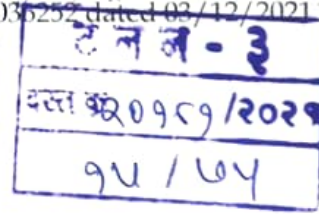 035252 dated 03/12/2021
ट न न - ३
दस्त क्र २०१८१/२०२१
१५ / ७५